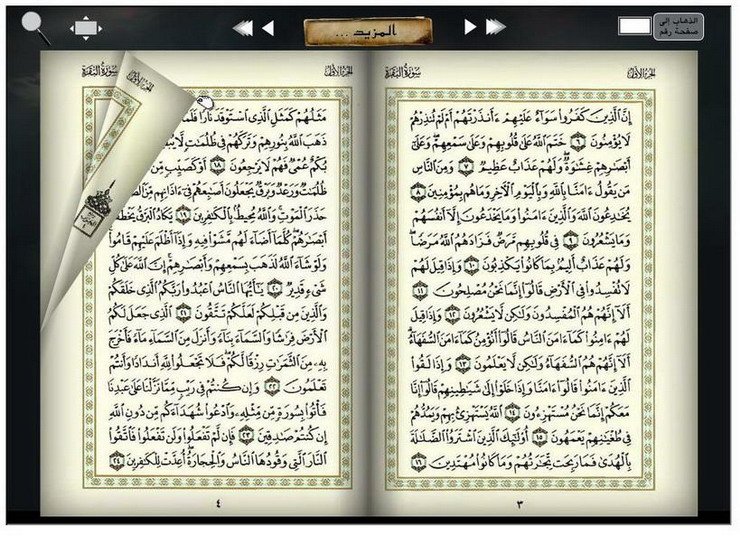 الذهاب إلى
صفحة رقم
المزيد ...
الجزء الأول
سورة البقرة
إِنَّ الَّذِينَ كَفَرُوا سَوَآءٌ عَلَيْهِمْ ءَأَنذَرْتَهُمْ أَمْ لَمْ تُنذِرْهُمْ
لَا يُؤْمِنُونَ ٦ خَتَمَ اللَّهُ عَلَىٰ قُلُوبِهِمْ وَعَلَىٰ سَمْعِهِمْ وَعَلَىٰ
أَبْصَٰرِهِمْ غِشَٰوَةٌ وَلَهُمْ عَذَابٌ عَظِيمٌ ٧ وَمِنَ النَّاسِ
مَن يَقُولُ ءَامَنَّا بِاللَّهِ وَبِالْيَوْمِ الْءَاخِرِ وَمَا هُم بِمُؤْمِنِينَ ٨
يُخَٰدِعُونَ اللَّهَ وَالَّذِينَ ءَامَنُوا وَمَا يَخْدَعُونَ إِلَّآ أَنفُسَهُمْ
وَمَا يَشْعُرُونَ ٩ فِي قُلُوبِهِم مَّرَضٌ فَزَادَهُمُ اللَّهُ مَرَضًا
وَلَهُمْ عَذَابٌ أَلِيمٌ بِمَا كَانُوا يَكْذِبُونَ ١٠ وَإِذَا قِيلَ لَهُمْ
لَا تُفْسِدُوا فِي الْأَرْضِ قَالُوٓا إِنَّمَا نَحْنُ مُصْلِحُونَ ١١
أَلَآ إِنَّهُمْ هُمُ الْمُفْسِدُونَ وَلَٰكِن لَّا يَشْعُرُونَ ١٢ وَإِذَا قِيلَ
لَهُمْ ءَامِنُوا كَمَآ ءَامَنَ النَّاسُ قَالُوٓا أَنُؤْمِنُ كَمَآ ءَامَنَ السُّفَهَآءُ
أَلَآ إِنَّهُمْ هُمُ السُّفَهَآءُ وَلَٰكِن لَّا يَعْلَمُونَ ١٣ وَإِذَا لَقُوا
الَّذِينَ ءَامَنُوا قَالُوٓا ءَامَنَّا وَإِذَا خَلَوْا إِلَىٰ شَيَٰطِينِهِمْ قَالُوٓا إِنَّا
مَعَكُمْ إِنَّمَا نَحْنُ مُسْتَهْزِءُونَ ١٤ اللَّهُ يَسْتَهْزِئُ بِهِمْ وَيَمُدُّهُمْ
فِي طُغْيَٰنِهِمْ يَعْمَهُونَ ١٥ أُولَٰٓئِكَ الَّذِينَ اشْتَرَوُا الضَّلَٰلَةَ
بِالْهُدَىٰ فَمَا رَبِحَت تِّجَٰرَتُهُمْ وَمَا كَانُوا مُهْتَدِينَ ١٦
٣
الجزء الأول
سورة البقرة
الجزء الأول
مَثَلُهُمْ كَمَثَلِ الَّذِي اسْتَوْقَدَ نَارًا فَلَمَّآ
ذَهَبَ اللَّهُ بِنُورِهِمْ وَتَرَكَهُمْ فِي ظُلُمَٰتٍ لَّا
بُكْمٌ عُمْيٌ فَهُمْ لَا يَرْجِعُونَ ١٨ أَوْ كَصَيِّبٍ مِّنَ
ظُلُمَٰتٌ وَرَعْدٌ وَبَرْقٌ يَجْعَلُونَ أَصَٰبِعَهُمْ فِيٓ ءَاذَانِهِم مِّنَ
حَذَرَ الْمَوْتِ وَاللَّهُ مُحِيطٌ بِالْكَٰفِرِينَ ١٩ يَكَادُ الْبَرْقُ يَخْطَفُ
أَبْصَٰرَهُمْ كُلَّمَآ أَضَآءَ لَهُم مَّشَوْا فِيهِ وَإِذَآ أَظْلَمَ عَلَيْهِمْ قَامُوا
وَلَوْ شَآءَ اللَّهُ لَذَهَبَ بِسَمْعِهِمْ وَأَبْصَٰرِهِمْ إِنَّ اللَّهَ عَلَىٰ كُلِّ
شَيْءٍ قَدِيرٌ ٢٠ يَٰٓأَيُّهَا النَّاسُ اعْبُدُوا رَبَّكُمُ الَّذِي خَلَقَكُمْ
وَالَّذِينَ مِن قَبْلِكُمْ لَعَلَّكُمْ تَتَّقُونَ ٢١ الَّذِي جَعَلَ لَكُمُ
الْأَرْضَ فِرَٰشًا وَالسَّمَآءَ بِنَآءً وَأَنزَلَ مِنَ السَّمَآءِ مَآءً فَأَخْرَجَ
بِهِ مِنَ الثَّمَرَٰتِ رِزْقًا لَّكُمْ فَلَا تَجْعَلُوا لِلَّهِ أَندَادًا وَأَنتُمْ
تَعْلَمُونَ ٢٢ وَإِن كُنتُمْ فِي رَيْبٍ مِّمَّا نَزَّلْنَا عَلَىٰ عَبْدِنَا
فَأْتُوا بِسُورَةٍ مِّن مِّثْلِهِ وَادْعُوا شُهَدَآءَكُم مِّن دُونِ اللَّهِ
إِن كُنتُمْ صَٰدِقِينَ ٢٣ فَإِن لَّمْ تَفْعَلُوا وَلَن تَفْعَلُوا فَاتَّقُوا
النَّارَ الَّتِي وَقُودُهَا النَّاسُ وَالْحِجَارَةُ أُعِدَّتْ لِلْكَٰفِرِينَ ٢٤
٤